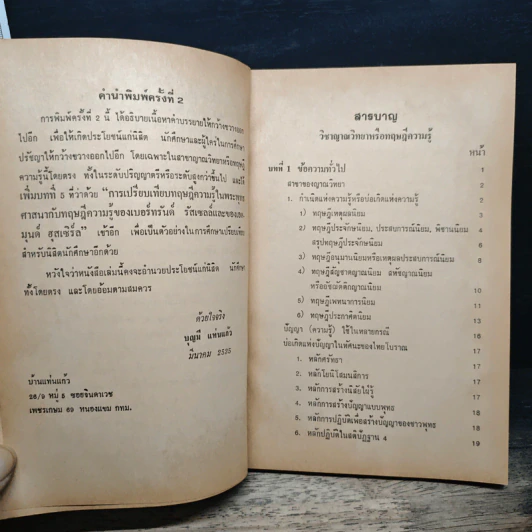 คำนำพิมพ์ครั้งที่ 2
การพิมพ์ครั้งที่ 2 นี้ ได้อธิบายเนื้อหาคำบรรยายให้กว้างขวางออก
ไปอีก เพื่อให้เกิดประโยชน์แก่นิสิต นักศึกษาและผู้ใคร่ในการศึกษา
ปรัชญาให้กว้างขวางออกไปอีก โดยเฉพาะในสาขาญาณวิทยาหรือทฤษฎี
ความรู้นี้โดยตรง ทั้งในระดับปริญญาตรีหรือระดับสูงกว่าขึ้นไป และได้
เพิ่มบทที่ 5 ที่ว่าด้วย "การเปรียบเทียบทฤษฎีความรู้ในพระพุทธ
ศาสนากับทฤษฎีความรู้ของเบอร์ทรันด์ รัสเซลล์และของเอด
มุนด์ ฮุสเซิร์ล" เข้าอีก เพื่อเป็นตัวอย่างในการศึกษาเปรียบเทียบ
สำหรับนิสิตนักศึกษาอีกด้วย
หวังใจว่าหนังสือเล่มนี้คงจะอำนวยประโยชน์แก่นิสิต นักศึกษา
ทั้งโดยตรง และโดยอ้อมตามสมควร
ด้วยใจจริง
บุญมี แท่นแก้ว
มีนาคม 2535
บ้านแท่นแก้ว
26/9 หมู่ 5 ซอยจินดาเวช
เพชรเกษม 69 หนองแขม กทม.
สารบาญ
วิชาญาณวิทยาหรือทฤษฎีความรู้
หน้า
บทที่ 1 ข้อความทั่วไป 1
สาขาของญาณวิทยา 2
1. กำเนิดแห่งความรู้หรือบ่อเกิดแห่งความรู้ 2
1) ทฤษฎีเหตุผลนิยม 2
2) ทฤษฎีประจักษ์นิยม, ประสบการณ์นิยม, พิชานนิยม 4
สรุปทฤษฎีประจักษ์นิยม 6
3) ทฤษฎีอนุมานนิยมหรือเหตุผลประสบการณ์นิยม 8
4) ทฤษฎีสัญชาตญาณนิยม สหัชญาณนิยม
หรืออัชฌัตติกญาณนิยม 10
5) ทฤษฎีเพทนาการนิยม 11
6) ทฤษฎีประกาศิตนิยม 13
ปัญญา (ความรู้) ใช้ในหลายกรณี 16
บ่อเกิดแห่งปัญญาในทัศนะของไทยโบราณ 17
1. หลักศรัทธา 17
2. หลักโยนิโสมนสิการ 17
3. หลักการสร้างนิสัยใฝ่รู้ 17
4. หลักการสร้างปัญญาแบบพุทธ 18
5. หลักการปฏิบัติเพื่อสร้างปัญญาของชาวพุทธ 18
6. หลักปฏิบัติในสติปัฏฐาน 4 19